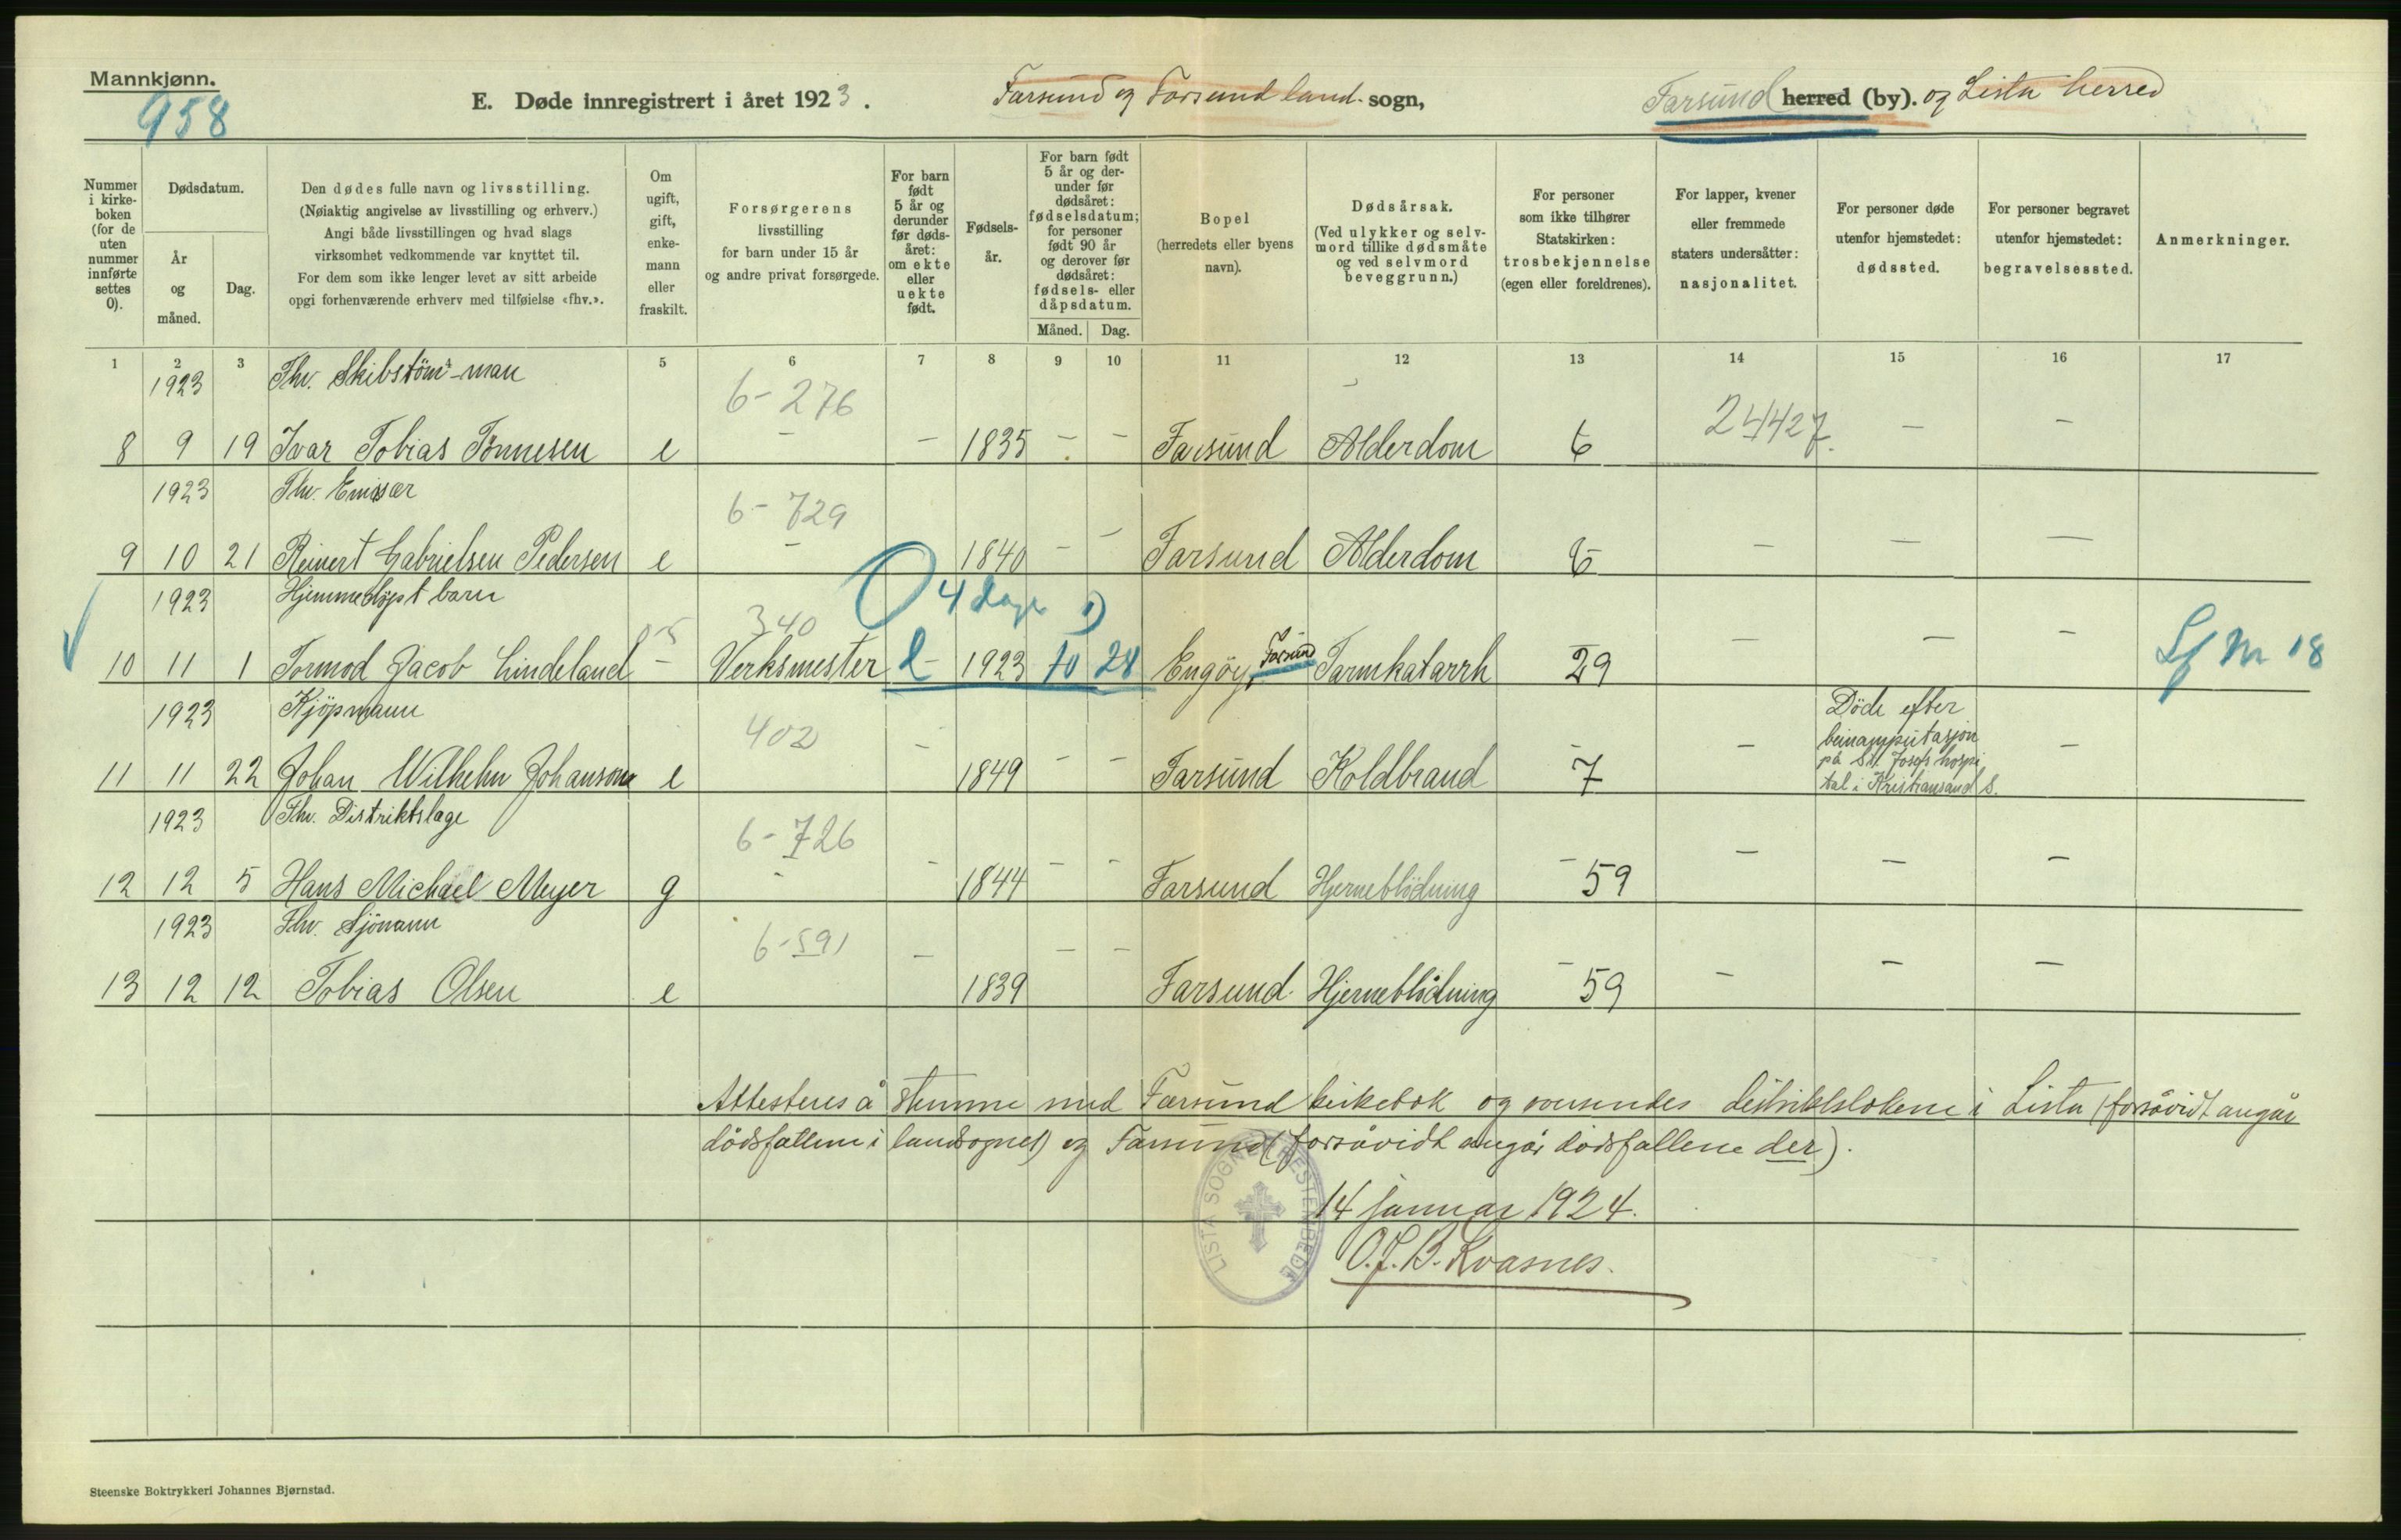 Mannkjønn.
958
E. Døde innregistrert i året 1923. Farsund og Farsund land. sogn, Farsund herred (by). og Lista herred
Nummer i kirke-boken (for de uten nummer innførte settes 0).
Dødsdatum.
År og måned.
Dag.
Den dødes fulle navn og livsstilling.
(Nøiaktig angivelse av livsstilling og erhverv.)
Angi både livsstillingen og hvad slags
virksomhet vedkommende var knyttet til.
For dem som ikke lenger levet av sitt arbeide
opgi forhenværende erhverv med tilføielse «fhv.».
Om ugift, gift, enke-mann eller fraskilt.
Forsørgerens
livsstilling
for barn under 15 år
og andre privat forsørgede.
For barn født 5 år og derunder før døds-året: om ekte eller uekte født.
Fødsels-år.
For barn født 5 år og der-under før dødsåret: fødselsdatum; for personer født 90 år og derover før dødsåret: fødsels- eller dåpsdatum.
Måned. Dag.
Bopel
(herredets eller byens
navn).
Dødsårsak.
(Ved ulykker og selv-
mord tillike dødsmåte
og ved selvmord
beveggrunn.)
For personer
som ikke tilhører
Statskirken:
trosbekjennelse
(egen eller foreldrenes).
For lapper, kvener
eller fremmede
staters undersåtter:
nasjonalitet.
For personer døde
utenfor hjemstedet:
dødssted.
For personer begravet
utenfor hjemstedet:
begravelsessted.
Anmerkninger.
1 2 3 5 6 7 8 9 10 11 12 13 14 15 16 17
1923 Fhv. Skibstømmerman 6-276
8 9 19 Ivar Tobias Tönnesen e - - 1835 - - Farsund Alderdom 6 24427. - -
1923 Fhv. Emisær 6-729
9 10 21 Reinert Gabrielsen Pedersen e - 1840 - - Farsund Alderdom 6 - - -
1923 Hjemmedöpt barn 340 4 dage 1)
10 11 1 Tormod Jacob Lindeland - Verksmester e 1923 10 28 Engöy, Farsund Tarmkatarrh 29 - - - Lf Nr 18
1923 Kjöpmann 402
11 11 22 Johan Wilhelm Johanson e - 1849 - - Farsund Koldbrand 7 - Döde efter beinamputasjon på St. Josefs hospital i Kristiansand S. -
1923 Fhv. Distriktslæge 6-726
12 12 5 Hans Michael Meyer g - - 1844 - - Farsund Hjerneblödning - 59 - - -
1923 Fhv. Sjömann 6-591
13 12 12 Tobias Olsen e - 1839 - - Farsund. Hjerneblödning - 59 - - -
Attesteres å stemme med Farsund kirkebok og oversendes distriktslægene i Lista (forsåvidt angår
dödsfallene i landsognet) og Farsund (forsåvidt angår dödsfallene der).
14 januar 1924.
O.J.B. Kvasnes.
LISTA SOGNEPRESTEMBEDE
Steenske Boktrykkeri Johannes Bjørnstad.